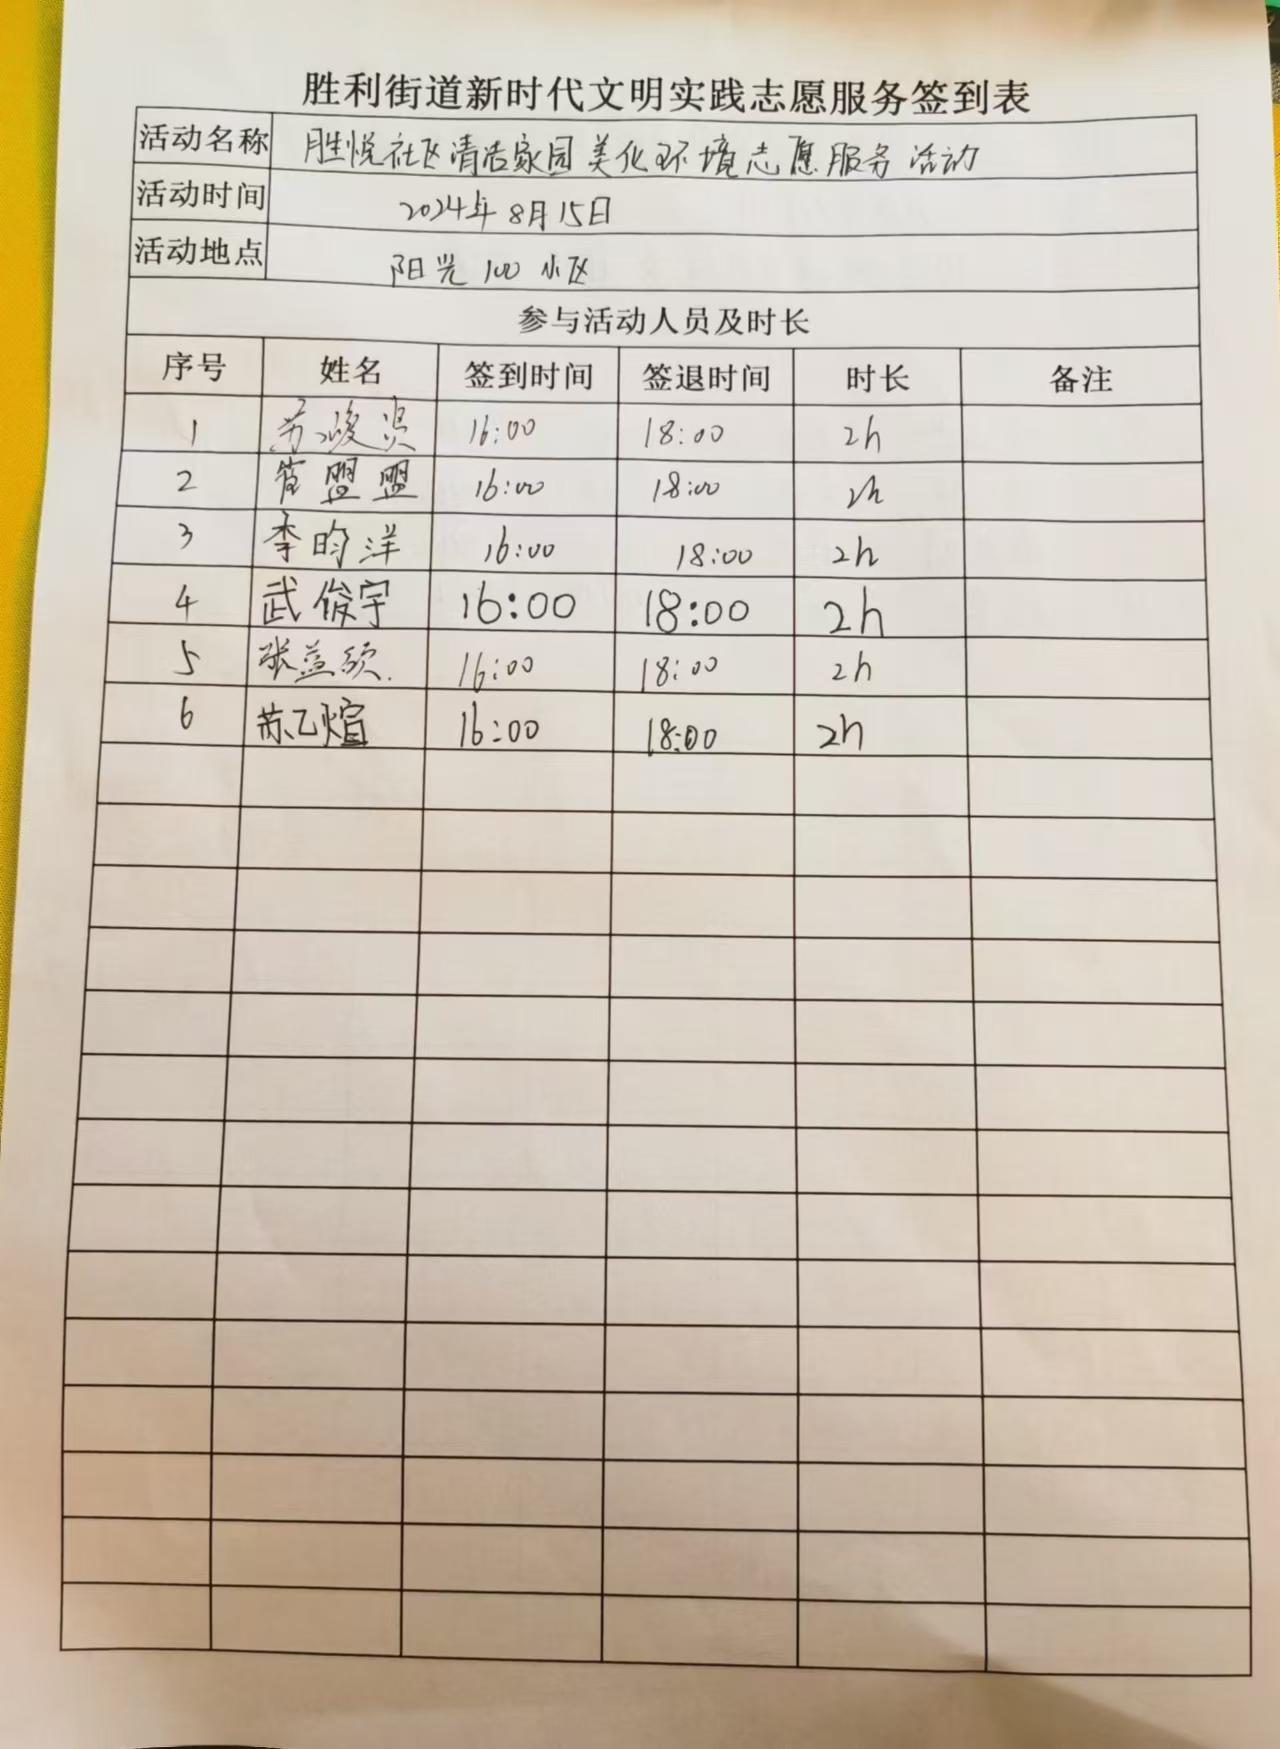 胜利街道新时代文明实践志愿服务签到表
活动名称 胜悦社区清洁家园美化环境志愿服务活动
活动时间 2024年8月15日
活动地点 阳光100小区
参与活动人员及时长
序号 姓名 签到时间 签退时间 时长 备注
1 苏峻 16:00 18:00 2h
2 盟盟 16:00 18:00 2h
3 李昀洋 16:00 18:00 2h
4 武俊宇 16:00 18:00 2h
5 张益硕 16:00 18:00 2h
6 苏乙煊 16:00 18:00 2h